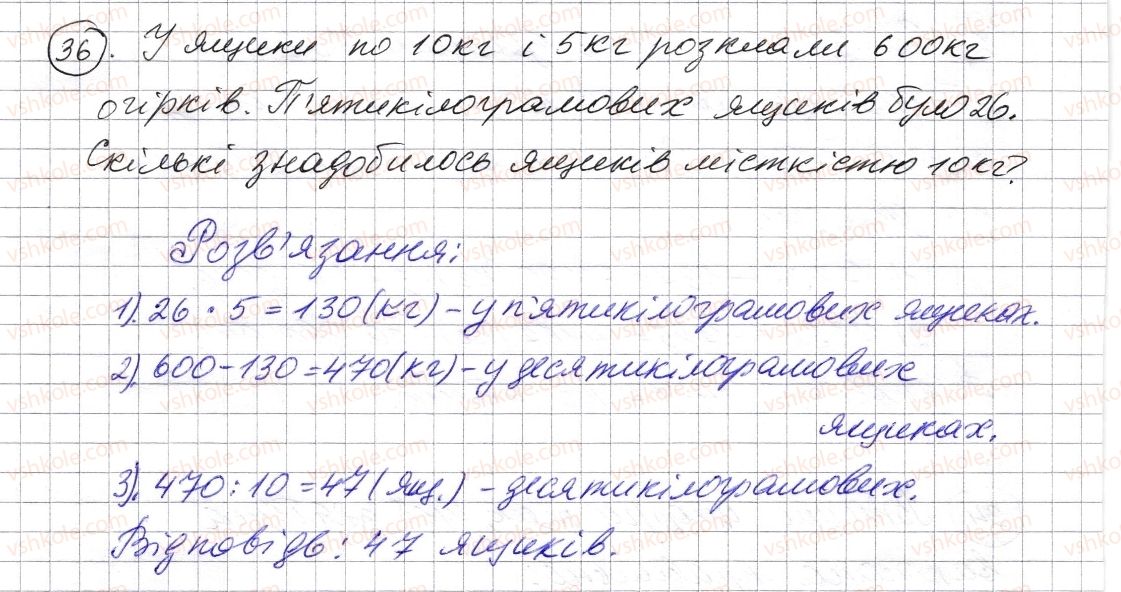 36. У ящики по 10кг і 5кг розклали 600кг
огірків. П'ятикілограмових ящиків було 26.
Скількі знадобилось ящиків місткістю 10кг?
Розв'язання:
1). 26 · 5 = 130(кг) - у п'ятикілограмових ящиках.
2). 600 - 130 = 470(кг) - у десятикілограмових
ящиках.
3). 470 : 10 = 47 (ящ.) - десятикілограмових.
Відповідь: 47 ящиків.